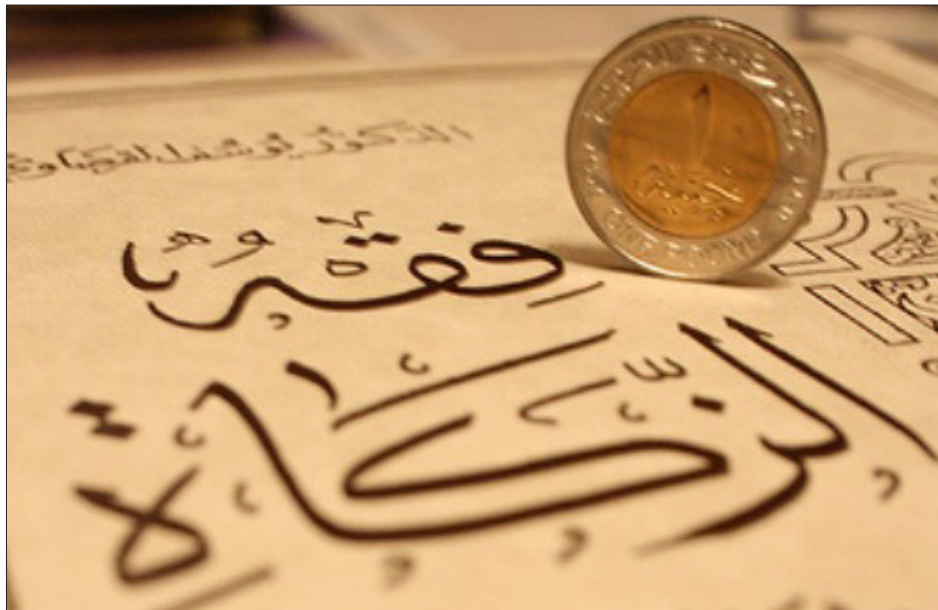 الدكتور يوسف القرضاوي
فِقْهُ
الزَّكَاةِ
١
جنيه
ONE POUND